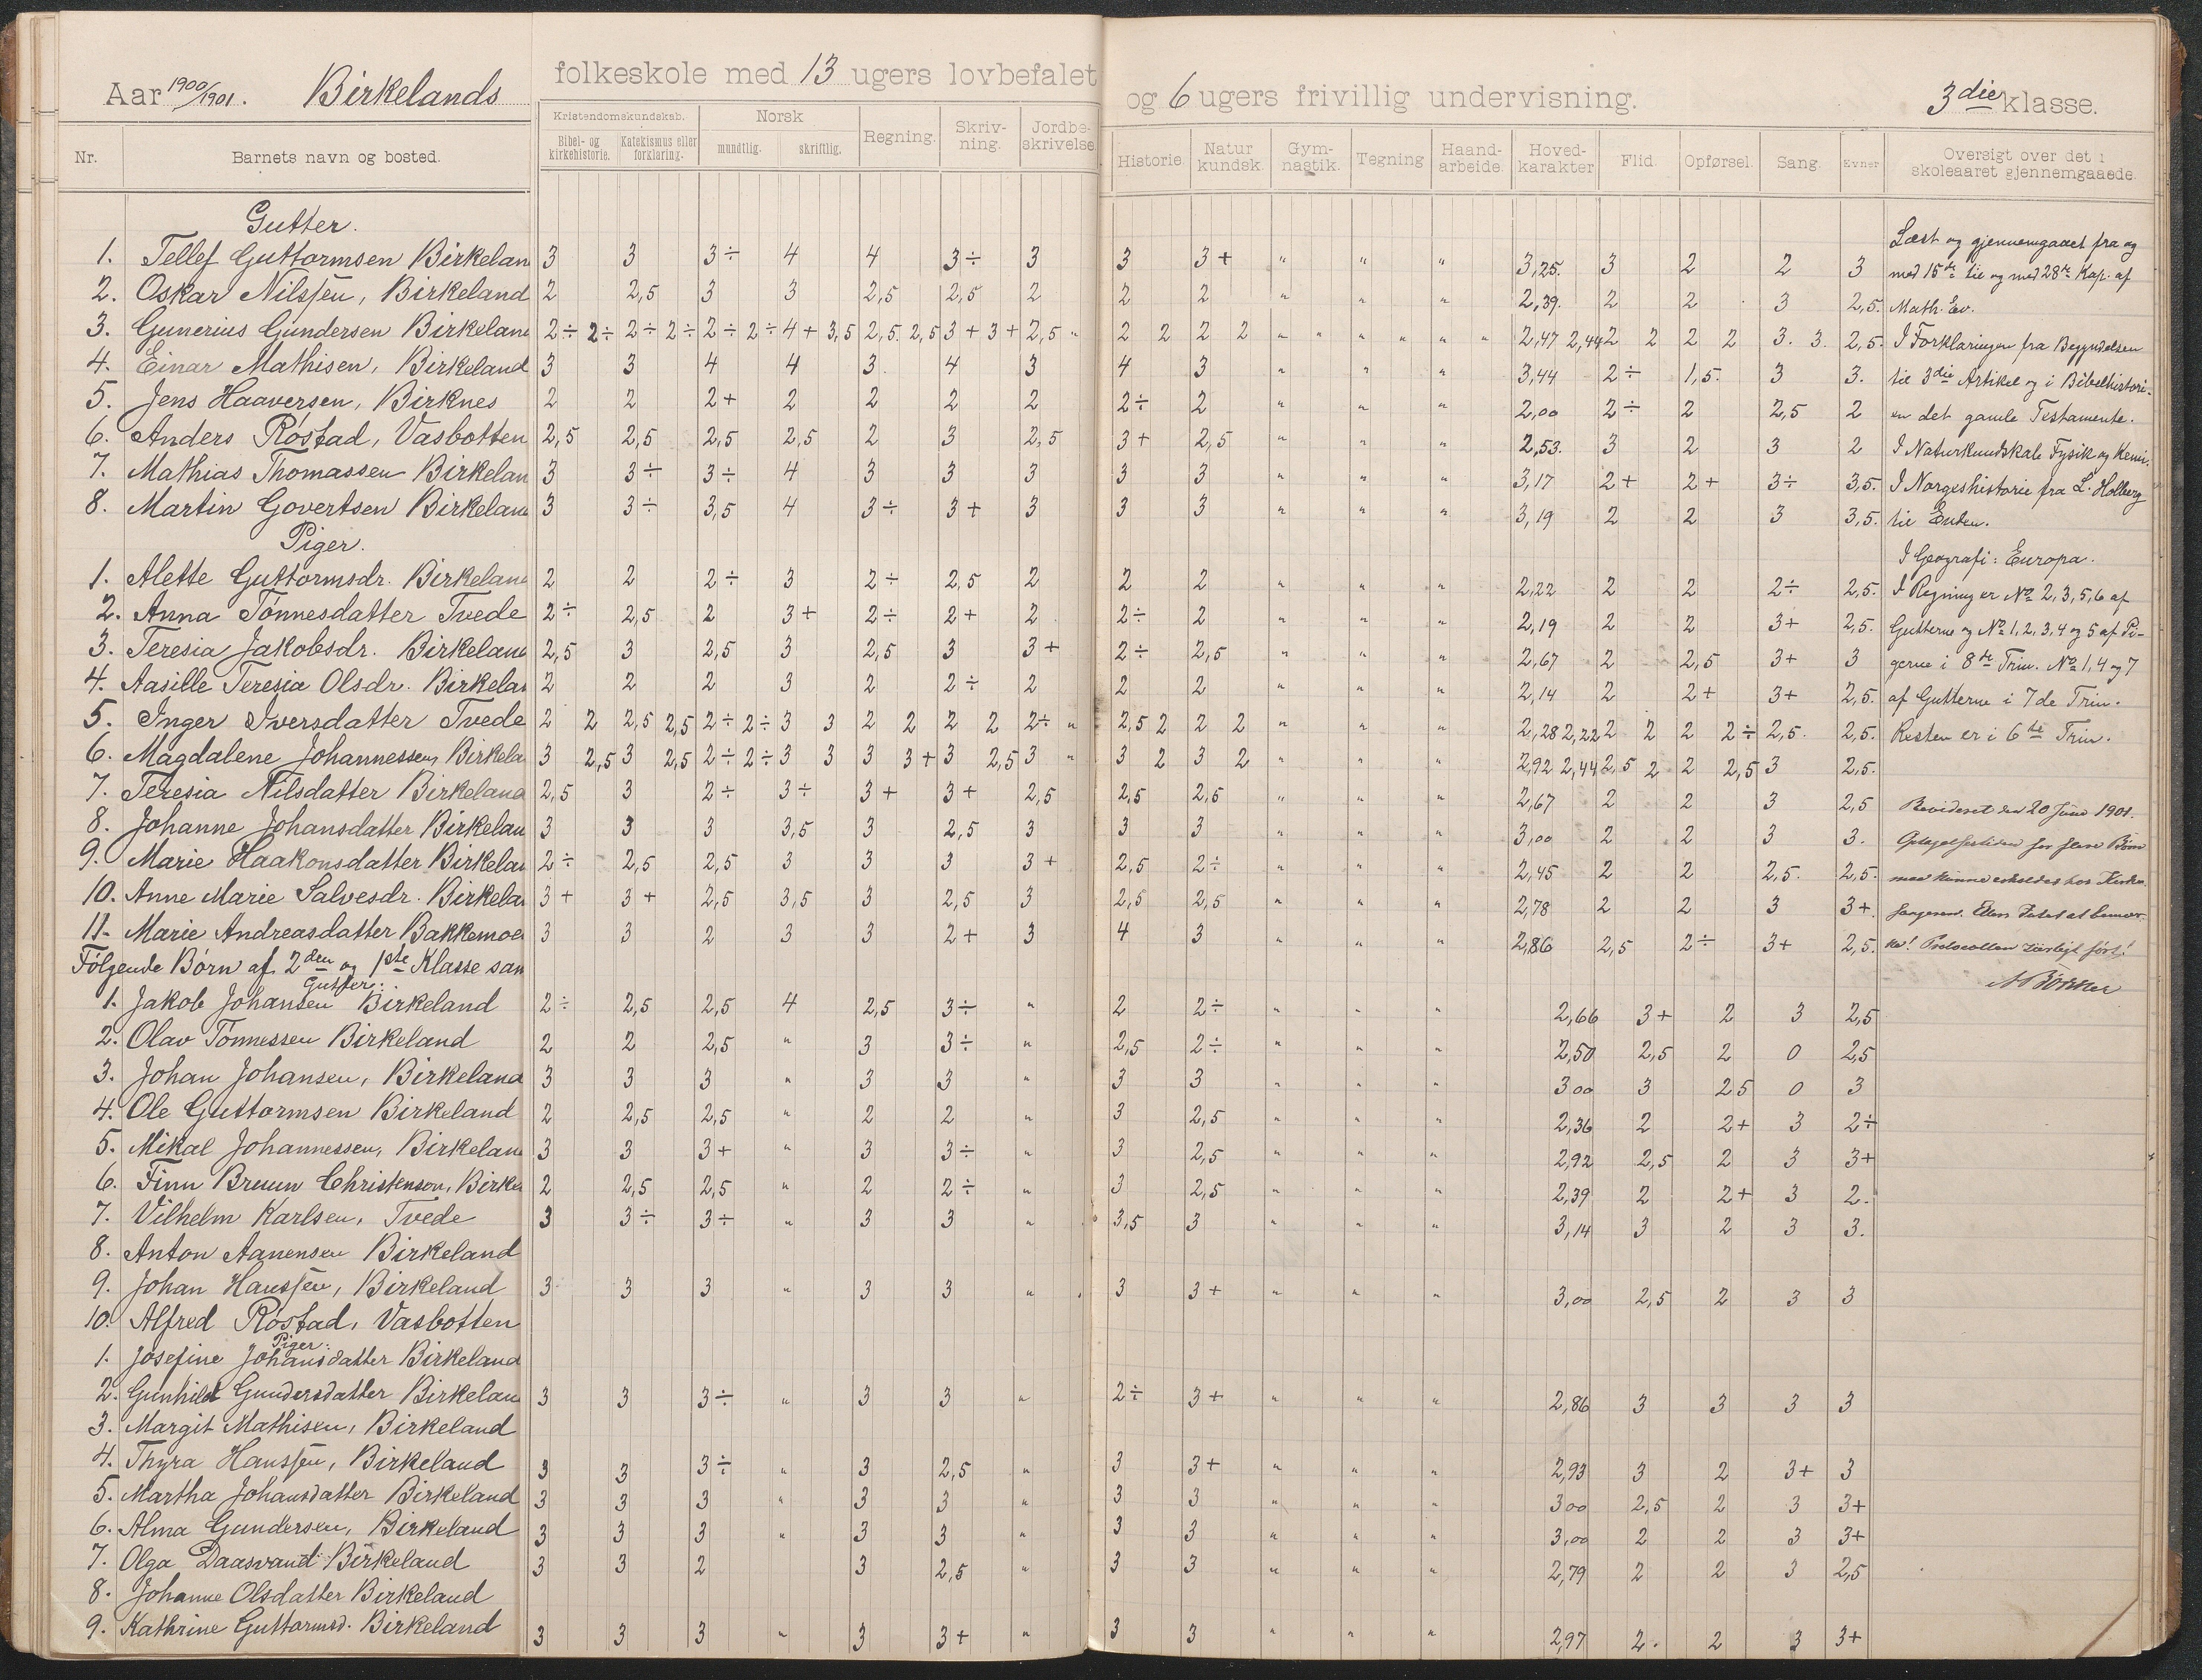 Aar 1900/1901. Birkelands folkeskole med 13 ugers lovbefalet og 6 ugers frivillig undervisning. 3die klasse.
Nr. Barnets navn og bosted. Kristendomskundskab. Bibel- og kirkehistorie. Katekismus eller forklaring. Norsk mundtlig. skriftlig. Regning. Skriv-ning. Jordbe-skrivelse. Historie. Natur kundsk. Gym-nastik. Tegning Haand-arbeide. Hoved-karakter Flid. Opførsel. Sang. Evner Oversigt over det i skoleaaret gjennemgaaede.
Gutter.
1. Tellef Guttormsen Birkelan 3 3 3÷ 4 4 3÷ 3 3 3+ " " " 3,25. 3 2 2 3
2. Oskar Nilssen, Birkeland 2 2,5 3 3 2,5 2,5 2 2 2 " " " 2,39. 2 2 3 2,5.
3. Gunerius Gundersen Birkelan 2÷ 2÷ 2÷ 2÷ 2÷ 2÷ 4+ 3,5 2,5. 2,5 3+ 3+ 2,5 " 2 2 2 2 " " " " " " 2,47 2,44 2 2 2 2 3. 3. 2,5.
4. Einar Mathisen, Birkeland 3 3 4 4 3 4 3 4 3 " " " 3,44 2÷ 1,5. 3 3.
5. Jens Haaversen, Birknes 2 2 2+ 2 2 2 2 2÷ 2 " " " 2,00 2÷ 2 2,5 2
6. Anders Røstad, Vasbotten 2,5 2,5 2,5 2,5 2 3 2,5 3+ 2,5 " " " 2,53. 3 2 3 2
7. Mathias Thomassen Birkelan 3 3÷ 3÷ 4 3 3 3 3 3 " " " 3,17 2+ 2+ 3÷ 3,5.
8. Martin Govertsen Birkelan 3 3÷ 3,5 4 3÷ 3+ 3 3 3 " " " 3,19 2 2 3 3,5.
Piger.
1. Alette Guttormsdr. Birkelan 2 2 2÷ 3 2÷ 2,5 2 2 2 " " " 2,22 2 2 2÷ 2,5.
2. Anna Tønnesdatter Tvede 2÷ 2,5 2 3+ 2÷ 2+ 2 2÷ 2 " " " 2,19 2 2 3+ 2,5.
3. Teresia Jakobsdr. Birkelan 2,5 3 2,5 3 2,5 3 3+ 2÷ 2,5 " " " 2,67 2 2,5 3+ 3
4. Aasille Teresia Olsdr. Birkelan 2 2 2 3 2 2÷ 2 2 2 " " " 2,14 2 2+ 3+ 2,5.
5. Inger Iversdatter Tvede 2 2 2,5 2,5 2÷ 2÷ 3 3 2 2 2 2 2÷ " 2,5 2 2 2 " " " 2,28 2,22 2 2 2 2÷ 2,5. 2,5.
6. Magdalene Johannessen Birkela 3 2,5 3 2,5 2÷ 2÷ 3 3 3 3+ 3 2,5 3 " 3 2 3 2 " " " 2,92 2,44 2,5 2 2 2,5 3 2,5.
7. Teresia Nilsdatter Birkeland 2,5 3 2÷ 3÷ 3+ 3+ 2,5 2,5 2,5 " " " 2,67 2 2 3 2,5
8. Johanne Johansdatter Birkelan 3 3 3 3,5 3 2,5 3 3 3 " " " 3,00 2 2 3 3.
9. Marie Haakonsdatter Birkelan 2÷ 2,5 2,5 3 3 3 3+ 2,5 2÷ " " " 2,45 2 2 2,5. 2,5.
10. Anne Marie Salvesdr. Birkelan 3+ 3+ 2,5 3,5 3 2,5 3 2,5 2,5 " " " 2,78 2 2 3 3+.
11. Marie Andreasdatter Bakkemoe 3 3 2 3 3 2+ 3 4 3 " " " 2,86 2,5 2÷ 3+ 2,5.
Følgende Børn af 2den og 1ste Klasse sam
Gutter:
1. Jakob Johansen Birkeland 2÷ 2,5 2,5 4 2,5 3÷ " 2 2÷ " " " 2,66 3+ 2 3 2,5
2. Olav Tønnessen Birkeland 2 2 2,5 " 3 3÷ " 2,5 2÷ " " " 2,50 2,5 2 0 2,5
3. Johan Johansen, Birkeland 3 3 3 " 3 3 " 3 3 " " " 3 00 3 2 5 0 3
4. Ole Guttormsen Birkeland 2 2,5 2,5 " 2 2 " 3 2,5 " " " 2,36 2 2+ 3 2÷
5. Mikal Johannessen, Birkelan 3 3 3+ " 3 3÷ " 3 2,5 " " " 2,92 2,5 2 3 3+
6. Finn Breuun Christenson, Birke 2 2,5 2,5 " 2 2÷ " 3 2,5 " " " 2,39 2 2+ 3 2.
7. Vilhelm Karlsen, Tvede 3 3÷ 3÷ " 3 3 " 3,5 3 " " " 3,14 3 2 3 3.
8. Anton Aanensen Birkeland
9. Johan Hanssen, Birkeland 3 3 3 " 3 3 " 3 3+ " " " 3,00 2,5 2 3 3
10. Alfred Røstad, Vasbotten
Piger:
1. Josefine Johansdatter Birkeland
2. Gunhild Gundersdatter Birkelan 3 3 3÷ " 3 3 " 2÷ 3+ " " " 2,86 3 3 3 3
3. Margit Mathisen, Birkeland
4. Thyra Hanssen, Birkeland 3 3 3÷ " 3 2,5 " 3 3+ " " " 2,93 3 2 3+ 3
5. Martha Johansdatter Birkeland 3 3 3 " 3 3 " 3 3 " " " 3 00 2,5 2 3 3+
6. Alma Gundersen, Birkeland 3 3 3 " 3 3 " 3 3 " " " 3,00 2 2 3 3+
7. Olga Daasvand Birkeland 3 3 2 3 2,5 " 3 3 " " " 2,79 2 2 3 2,5
8. Johanne Olsdatter Birkeland
9. Kathrine Guttormsd. Birkeland 3 3 3 " 3 3+ " 3 3 " " " 2,97 2. 2 3 3+
Læst og gjennemgaaet fra og
med 15de til og med 28de Kap. af
Math. Ev.
I Forklaringen fra Begyndelsen
til 3die Artikel og i Bibelhistori-
en det gamle Testamente.
I Naturkundskab Fysik og Kemi.
I Norgeshistorie fra L. Holberg
til Enden.
I Geografi: Europa.
I Regning er No 2, 3, 5, 6 af
Gutterne og No 1, 2, 3, 4 og 5 af Pi-
gerne i 8de Trin. No 1, 4 og 7
af Gutterne i 7de Trin.
Resten er i 6te Trin.
Revideret den 20 Juni 1901.
for flere Børn
maa kunne
Intet at bemær-
ke! Protocollenført!